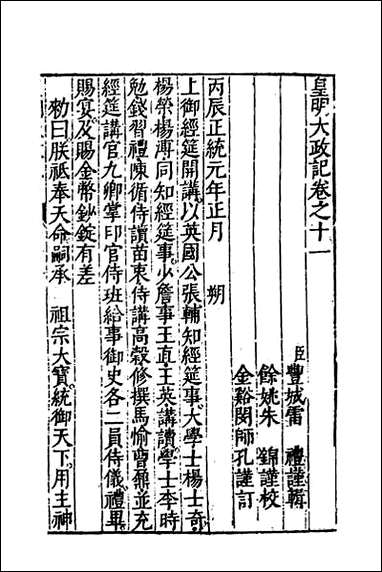 皇明大政記卷之十一
臣豐城雷　禮謹輯
餘姚朱　錦謹校
金谿閔師孔謹訂
丙辰正統元年正月　朔
上御經筵開講以英國公張輔知經筵事大學士楊士奇
楊榮楊溥同知經筵事少詹事王直王英講讀學士李時
勉錢習禮陳循侍讀苗衷侍講高穀修撰馬愉曹鼐並充
經筵講官九卿掌印官侍班給事御史各二員侍儀禮畢
賜宴及賜金幣鈔錠有差
勑曰朕祗奉天命嗣承　祖宗大寶統御天下用主神